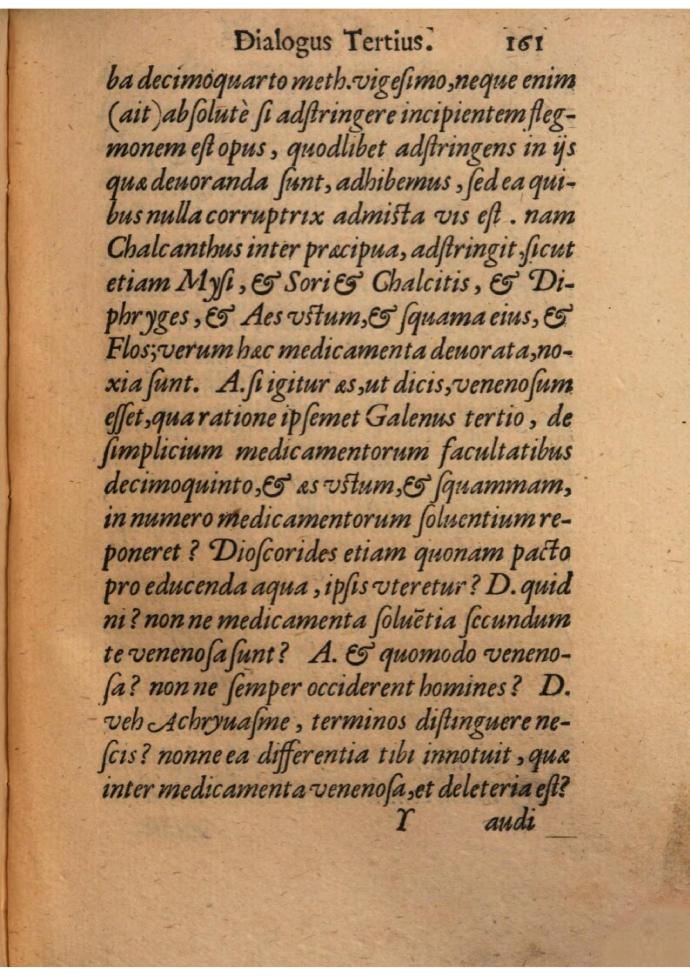 Dialogus Tertius. 161
ba decimoquarto meth.vigesimo,neque enim
(ait)absolutè si adstringere incipientem fleg-
monem est opus, quodlibet adstringens in ijs
quæ deuoranda sunt, adhibemus, sed ea qui-
bus nulla corruptrix admista vis est. nam
Chalcanthus inter præcipua, adstringit,sicut
etiam Mysi, & Sori & Chalcitis, & Di-
phryges, & Aes vstum,& squama eius, &
Flos;verum hæc medicamenta deuorata,no-
xia sunt. A.si igitur æs,ut dicis,venenosum
esset,qua ratione ipsemet Galenus tertio, de
simplicium medicamentorum facultatibus
decimoquinto,& æs vstum,& squammam,
in numero medicamentorum soluentium re-
poneret? Dioscorides etiam quonam pacto
pro educenda aqua, ipsis vteretur? D. quid
ni? non ne medicamenta soluẽtia secundum
te venenosa sunt? A. & quomodo veneno-
sa? non ne semper occiderent homines? D.
veh Achryuasme, terminos distinguere ne-
scis? nonne ea differentia tibi innotuit, quæ
inter medicamenta venenosa,et deleteria est?
Y audi